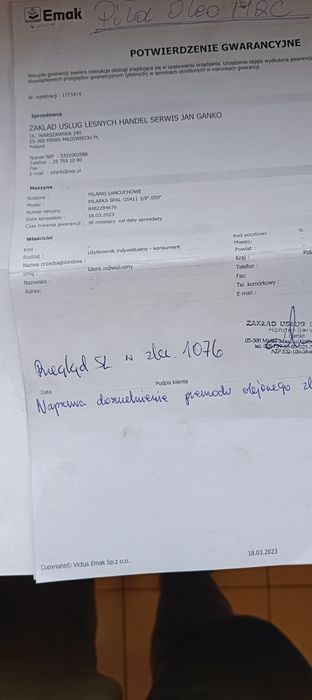 Emak Piła Oleo
POTWIERDZENIE GWARANCYJNE
Warunki gwarancji zawiera instrukcja obsługi znajdująca się w opakowaniu urządzenia. Urządzenie objęte wydłużoną gwarancją
obowiązkowych przeglądów gwarancyjnych (płatnych) w terminach określonych w warunkach gwarancji.
Nr rejestracji : 1773414
Sprzedawca
ZAKŁAD USŁUG LEŚNYCH HANDEL SERWIS JAN GAŃKO
UL. WARSZAWSKA 240
05-300 MIŃSK MAZOWIECKI PL
Poland
Numer NIP :
Telefon : 25 759 10 80
Fax :
E-mail : pilarki@wp.pl
Maszyna
Rodzina : PILARKI ŁAŃCUCHOWE
Model : PILARKA SPAL. GS411 3/8".050"
Numer seryjny:
Data sprzedaży : 18.03.2023
Czas trwania gwarancji : 36 miesięcy od daty sprzedaży
Właściciel
Kod :
Rodzaj : Użytkownik indywidualny - konsument
Nazwa przedsiębiorstwa :
Imię : klient indywidualny
Nazwisko :
Adres:
Kod pocztowy :
Miasto:
Powiat :
Kraj :
Telefon :
Fax:
Tel. komórkowy :
E-mail :
ZAKŁAD USŁUG
Przegląd SL N zlec. 1076
Data
Podpis klienta
Naprawa doszczelnienie przewodu olejowego
18.03.2023
Copyright© Victus Emak Sp.z o.o.